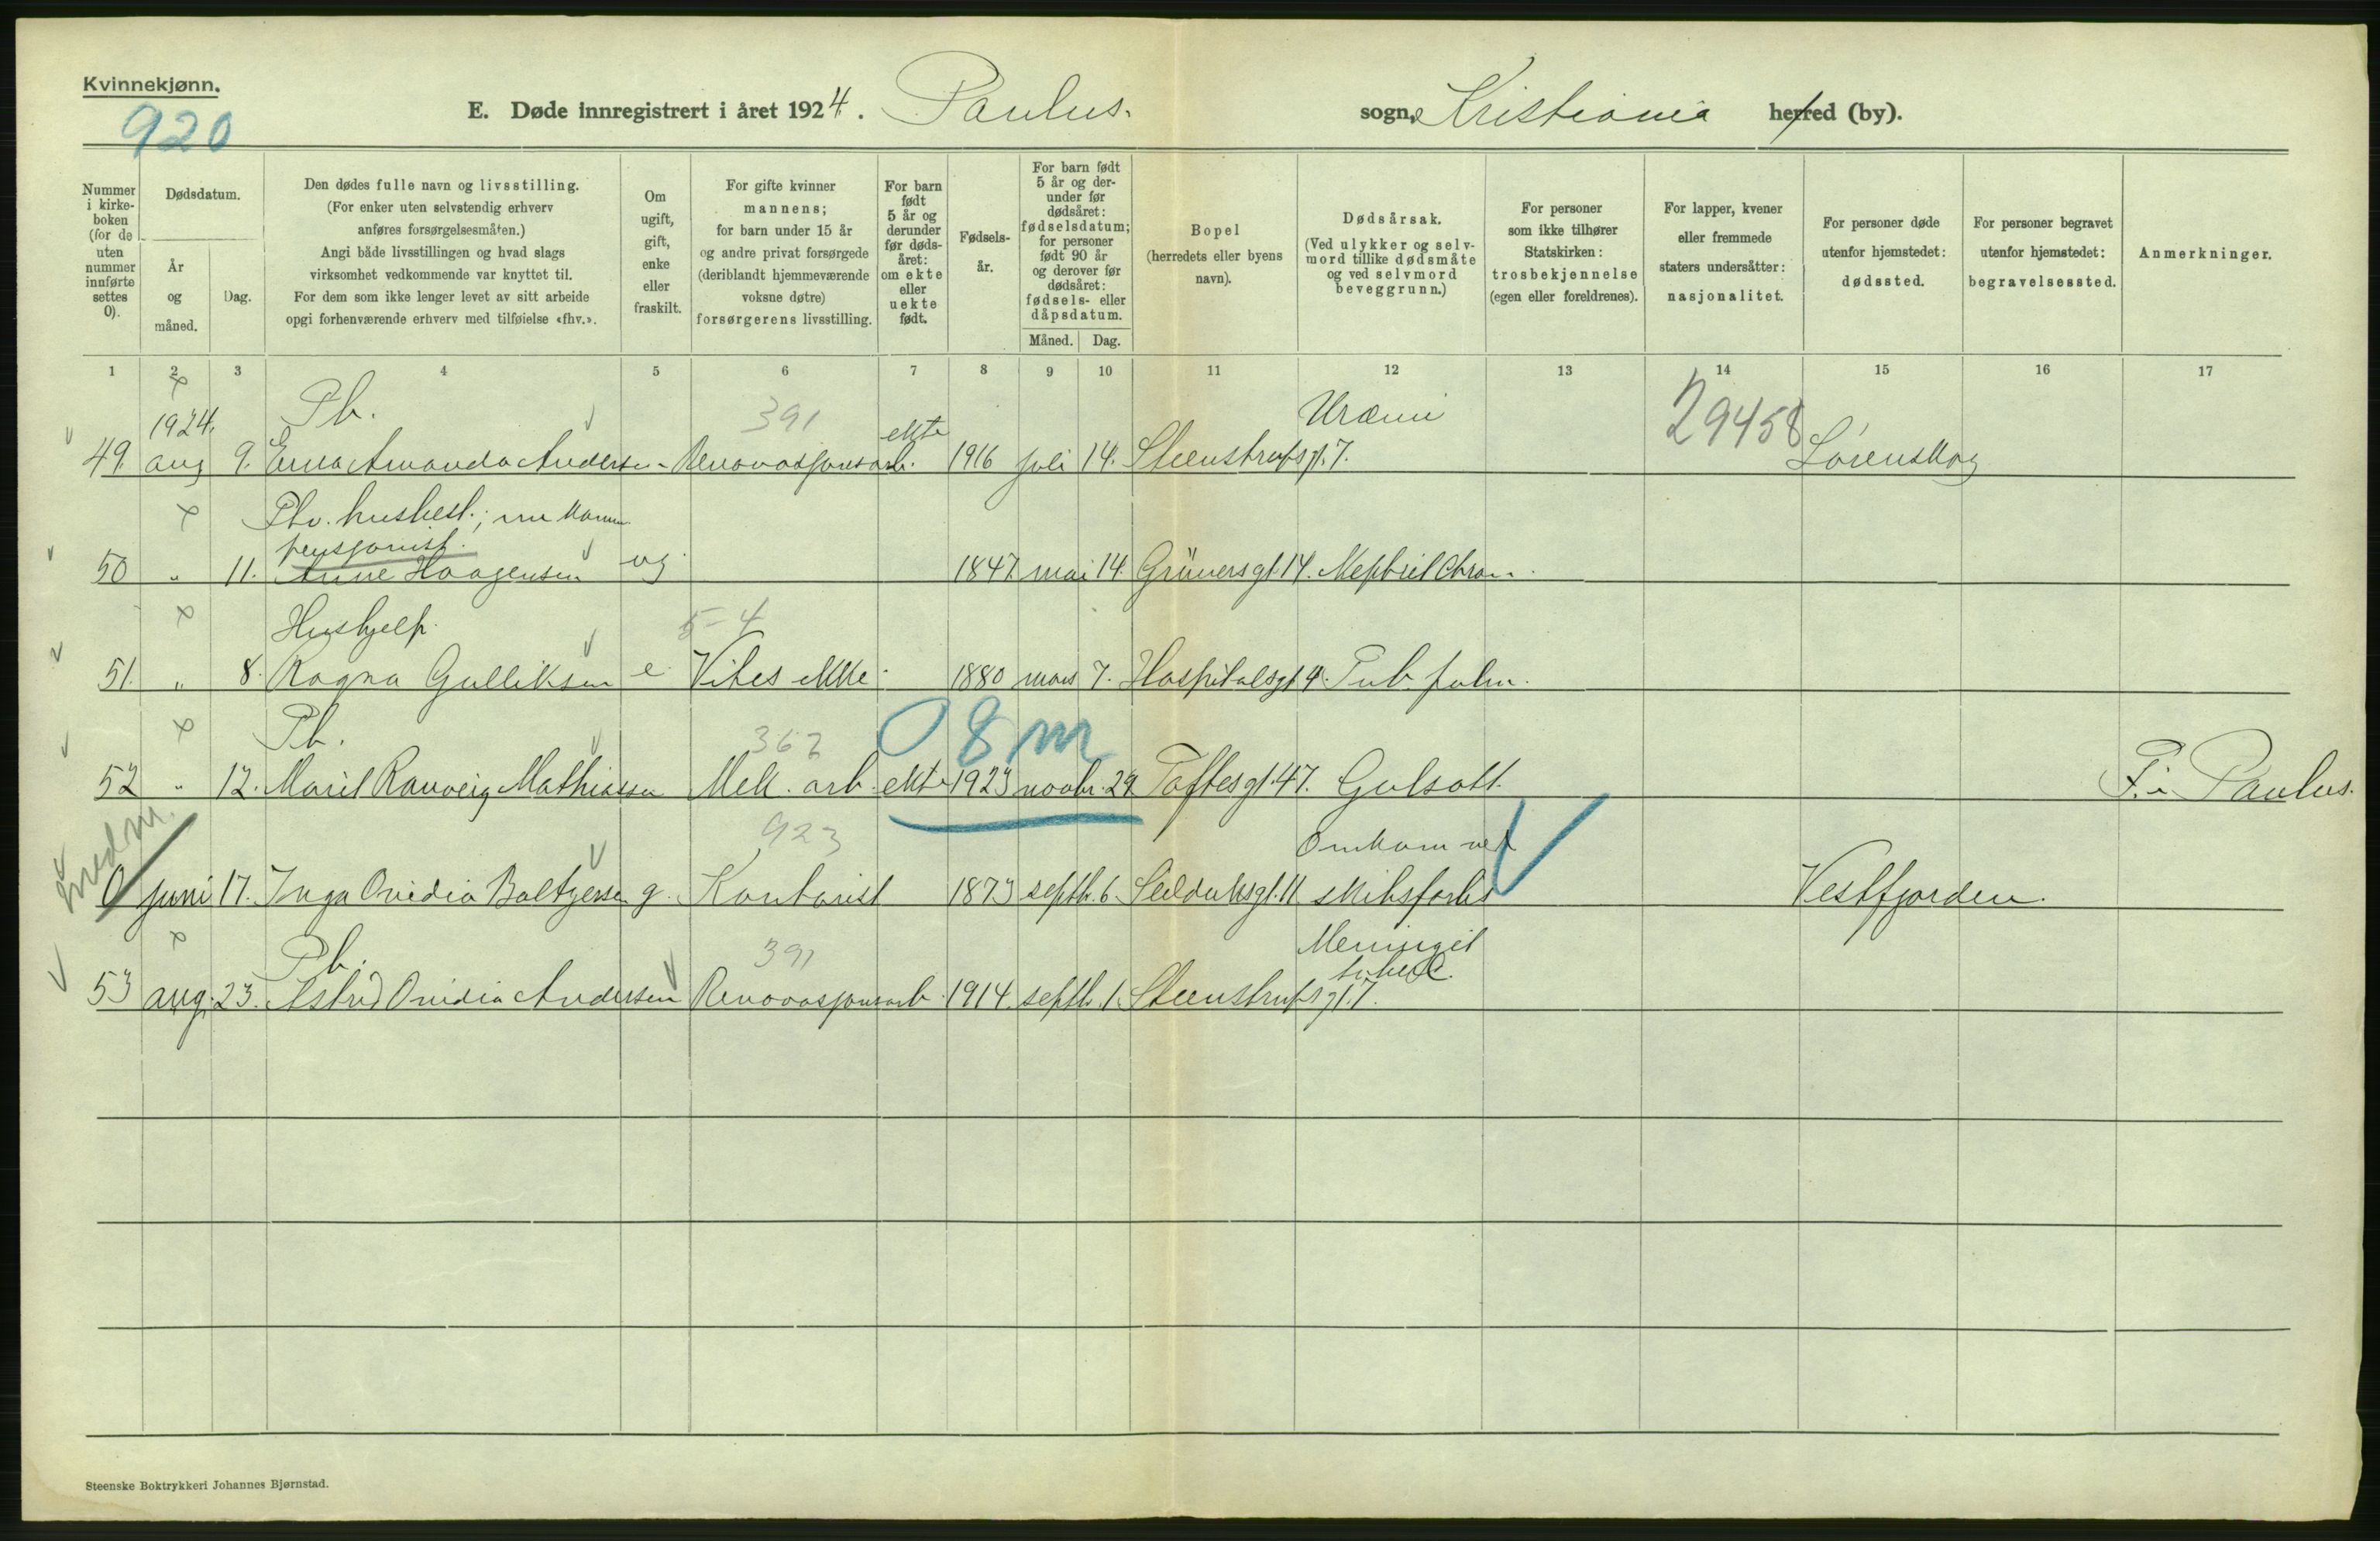 Kvinnekjønn.
920
E. Døde innregistrert i året 1924. Paulus. sogn, Kristiania herred (by).
Nummer i kirkeboken (for de uten nummer innførte settes 0).
Dødsdatum.
År og måned.
Dag.
Den dødes fulle navn og livsstilling.
(For enker uten selvstendig erhverv
anføres forsørgelsesmåten.)
Angi både livsstillingen og hvad slags
virksomhet vedkommende var knyttet til.
For dem som ikke lenger levet av sitt arbeide
opgi forhenværende erhverv med tilføielse «fhv.».
Om ugift, gift, enke eller fraskilt.
For gifte kvinner
mannens;
for barn under 15 år
og andre privat forsørgede
(deriblandt hjemmeværende
voksne døtre)
forsørgerens livsstilling.
For barn født 5 år og derunder før dødsåret: om ekte eller uekte født.
Fødselsår.
For barn født 5 år og derunder før dødsåret: fødselsdatum; for personer født 90 år og derover før dødsåret: fødsels- eller dåpsdatum.
Måned. Dag.
Bopel
(herredets eller byens navn).
Dødsårsak.
(Ved ulykker og selvmord tillike dødsmåte og ved selvmord beveggrunn.)
For personer
som ikke tilhører
Statskirken:
trosbekjennelse
(egen eller foreldrenes).
For lapper, kvener
eller fremmede
staters undersåtter:
nasjonalitet.
For personer døde
utenfor hjemstedet:
dødssted.
For personer begravet
utenfor hjemstedet:
begravelsessted.
Anmerkninger.
1 2 3 4 5 6 7 8 9 10 11 12 13 14 15 16 17
1924. Pb. 391 ekte Uræmi 29458
49. aug 9. Erna Amanda Andersen - Renovasjonsarb. 1916 juli 14. Steenstrupsgt. 7. Lørenskog
Fhv. husbest.; nu komm
pensjonist.
50 " 11. Anne Haagensen ug. 1847 mai 14. Grünersgt. 14. Nephrit Chron.
Hushjelp. 5-4
51. " 8. Ragna Gulliksen e. Vites ikke. 1880 mars 7. Hospitalsgt. 9. Tub. pulm.
Pb. 367 08m
52 " 12. Marit Ranveig Mathiassen Mek. arb. ekte 1923 novbr. 29. Toftesgt. 47. Gulsott. F. i Paulus.
medm. 923 Omkom ved
0 juni 17. Inga Ovidia Baltzersen g. Kontorist 1873 septbr. 6. Seilduksgt. 11 skibsforlis Vestfjorden.
Pb. 391 Meningit
tuberc.
53 aug. 23. Astrid Ovidia Andersen Renovasjonsarb. 1914. septbr. 1. Steenstrupsgt. 7.
Steenske Boktrykkeri Johannes Bjørnstad.